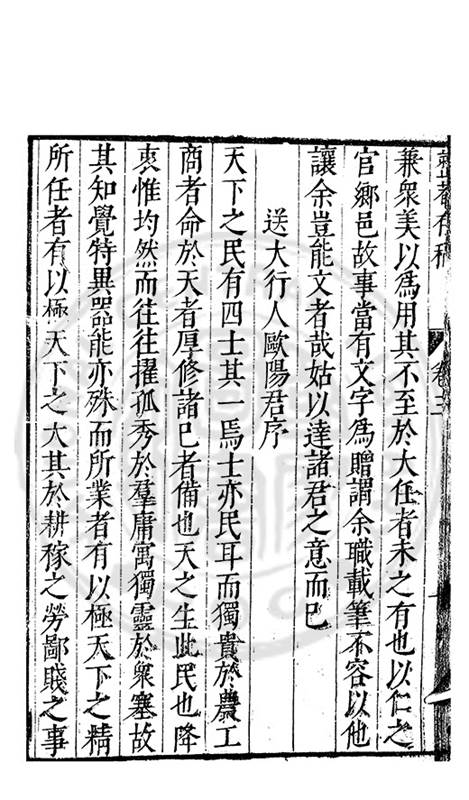 存稿
卷二
兼衆美以爲用其不至於大任者未之有也以仁之
官鄉邑故事當有文字爲贈謂余職載筆不容以他
讓余豈能文者哉姑以達諸君之意而已
送大行人歐陽君序
天下之民有四士其一焉士亦民耳而獨貴於農工
商者命於天者厚修諸已者備也天之生此民也降
衷惟均然而往往擢孤秀於羣庸寓獨靈於衆塞故
其知覺特異器能亦殊而所業者有以極天下之精
所任者有以極天下之大其於耕稼之勞鄙賤之事